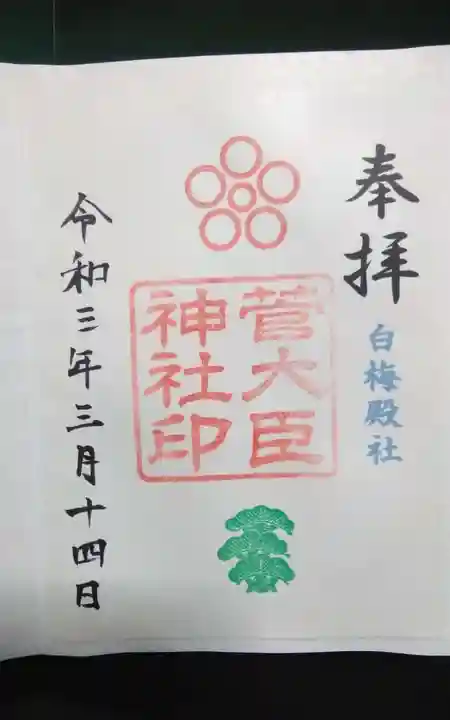 奉拝
白梅殿社
菅大臣
神社印
令和三年三月十四日